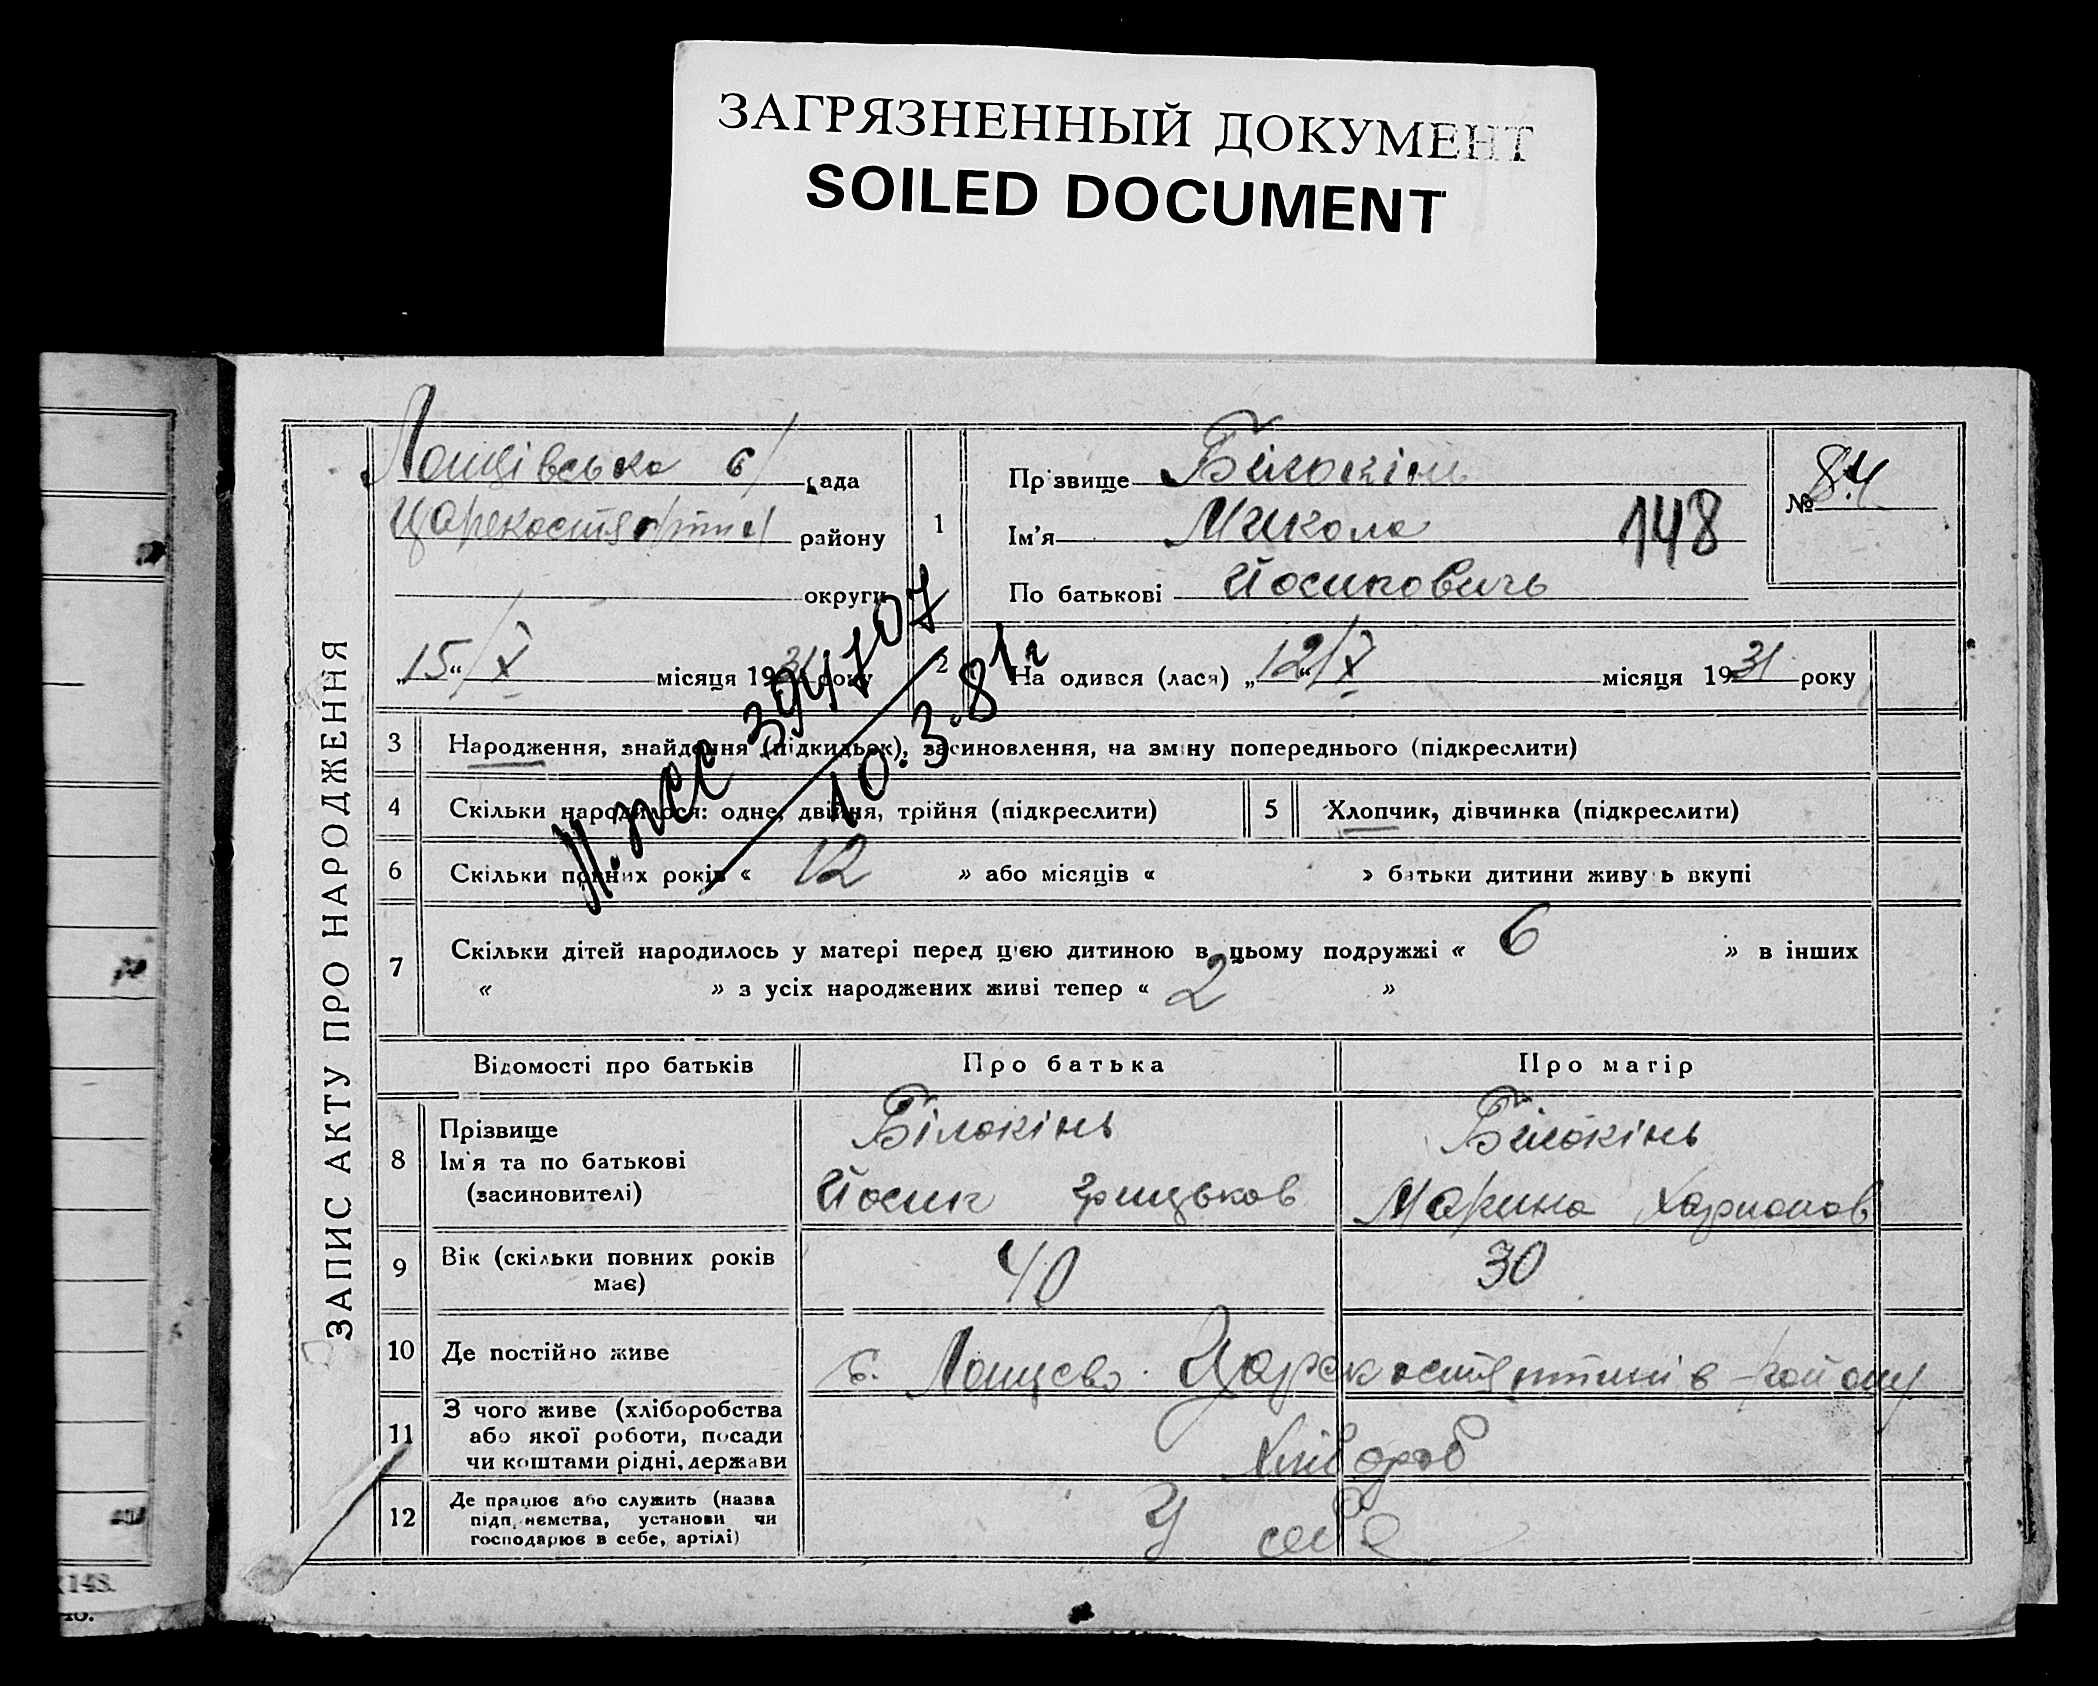 ЗАГРЯЗНЕННЫЙ ДОКУМЕНТ
SOILED DOCUMENT
ЗАПИС АКТУ ПРО НАРОДЖЕННЯ
Лощівська с/рада
району
округи
„15“/X місяця 1931 року
1
Прізвище Білокінь
Ім'я Микола
По батькові Йосиповичь
148
№ 84
2
На одився (лася) „12“/X місяця 1931 року
394707
10.3.81г
3 Народження, знайдення (підкидьок), засиновлення, на зміну попереднього (підкреслити)
4 Скільки народилося: одне, двійня, трійня (підкреслити)
5 Хлопчик, дівчинка (підкреслити)
6 Скільки повних років « 12 » або місяців « » батьки дитини живуть вкупі
7 Скільки дітей народилось у матері перед цією дитиною в цьому подружжі « 6 » в інших
« » з усіх народжених живі тепер « 2 »
Відомості про батьків
Про батька
Про матір
8 Прізвище
Ім'я та по батькові
(засиновителі)
Білокінь
Йосип Грицьков
Білокінь
Марина
9 Вік (скільки повних років
має)
40
30
10 Де постійно живе
с. Лощево
11 З чого живе (хліборобства
або якої роботи, посади
чи коштами рідні, держави
Хлібороб
12 Де працює або служить (назва
підприємства, установи чи
господарює в себе, артілі)
У себе
148.